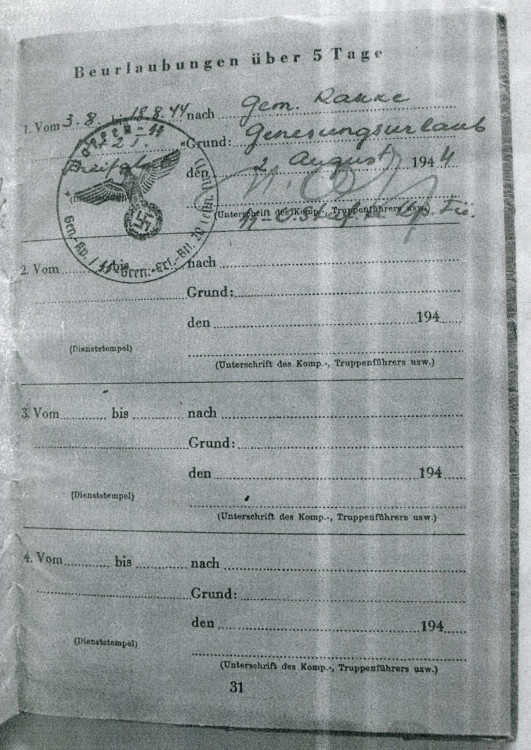 Beurlaubungen über 5 Tage
1. Vom 3.8. bis 18.8.44 nach Gem. Ranke
Grund: Genesungsurlaub
den 2. August 1944
(Unterschrift des Komp.-, Truppenführers usw.)
2. Vom bis nach
Grund:
den 194
(Dienststempel)
(Unterschrift des Komp.-, Truppenführers usw.)
3. Vom bis nach
Grund:
den 194
(Dienststempel)
(Unterschrift des Komp.-, Truppenführers usw.)
4. Vom bis nach
Grund:
den 194
(Dienststempel)
(Unterschrift des Komp.-, Truppenführers usw.)
31